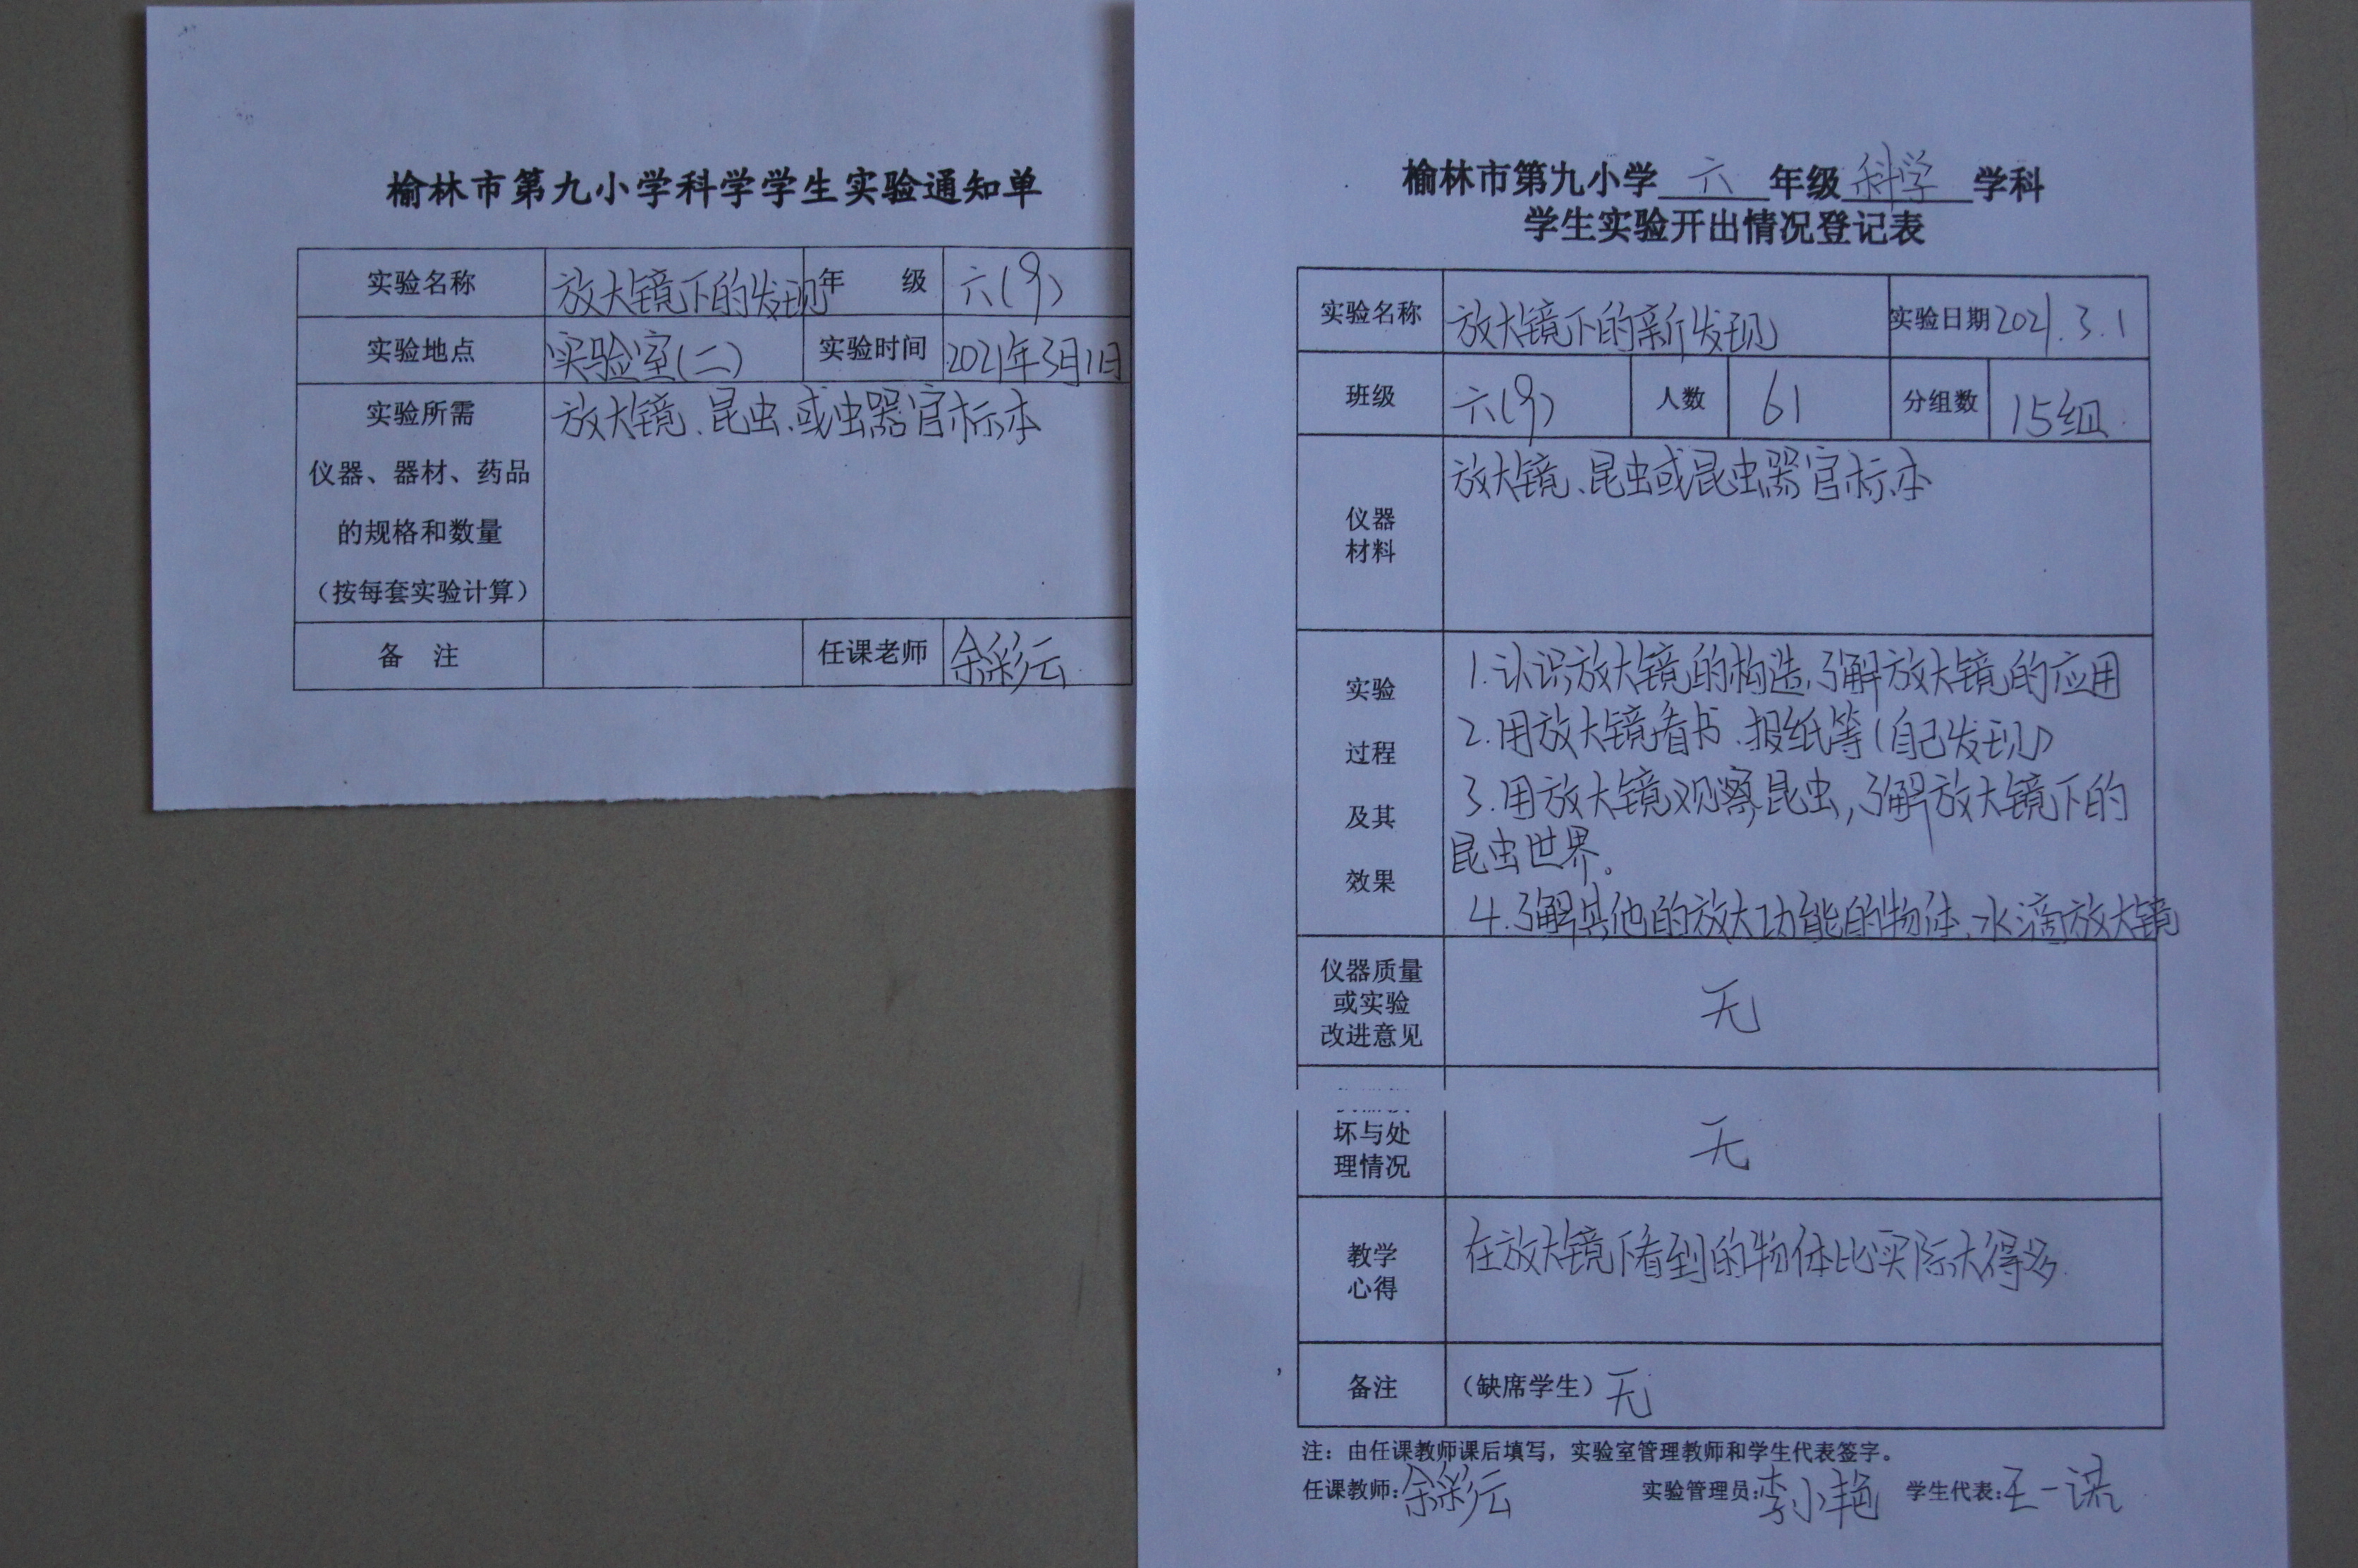 榆林市第九小学科学学生实验通知单
实验名称 放大镜下的发现 年 级 六(9)
实验地点 实验室(二) 实验时间 2021年3月1日
实验所需 放大镜、昆虫、或虫器官标本
仪器、器材、药品
的规格和数量
(按每套实验计算)
备 注 任课老师 余彩云
榆林市第九小学 六 年级 科学 学科
学生实验开出情况登记表
实验名称 放大镜下的新发现 实验日期 2021.3.1
班级 六(9) 人数 61 分组数 15组
仪器
材料
放大镜、昆虫或昆虫器官标本
实验
过程
及其
效果
1.认识放大镜的构造,了解放大镜的应用
2.用放大镜看书、报纸等(自己发现)
3.用放大镜观察昆虫,了解放大镜下的
昆虫世界。
4.了解其他的放大功能的物体、水滴放大镜
仪器质量
或实验
改进意见
无
坏与处
理情况
无
教学
心得
在放大镜下看到的物体比实际大得多.
备注 (缺席学生) 无
注:由任课教师课后填写,实验室管理教师和学生代表签字。
任课教师:余彩云 实验管理员:李小艳 学生代表:王一诺